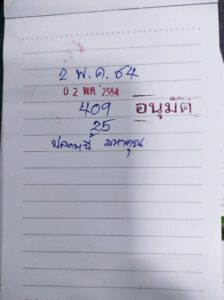 2 พ.ค. 64
02 พ.ค. 2564
409 อนุมัติ
25
มหาคุณ